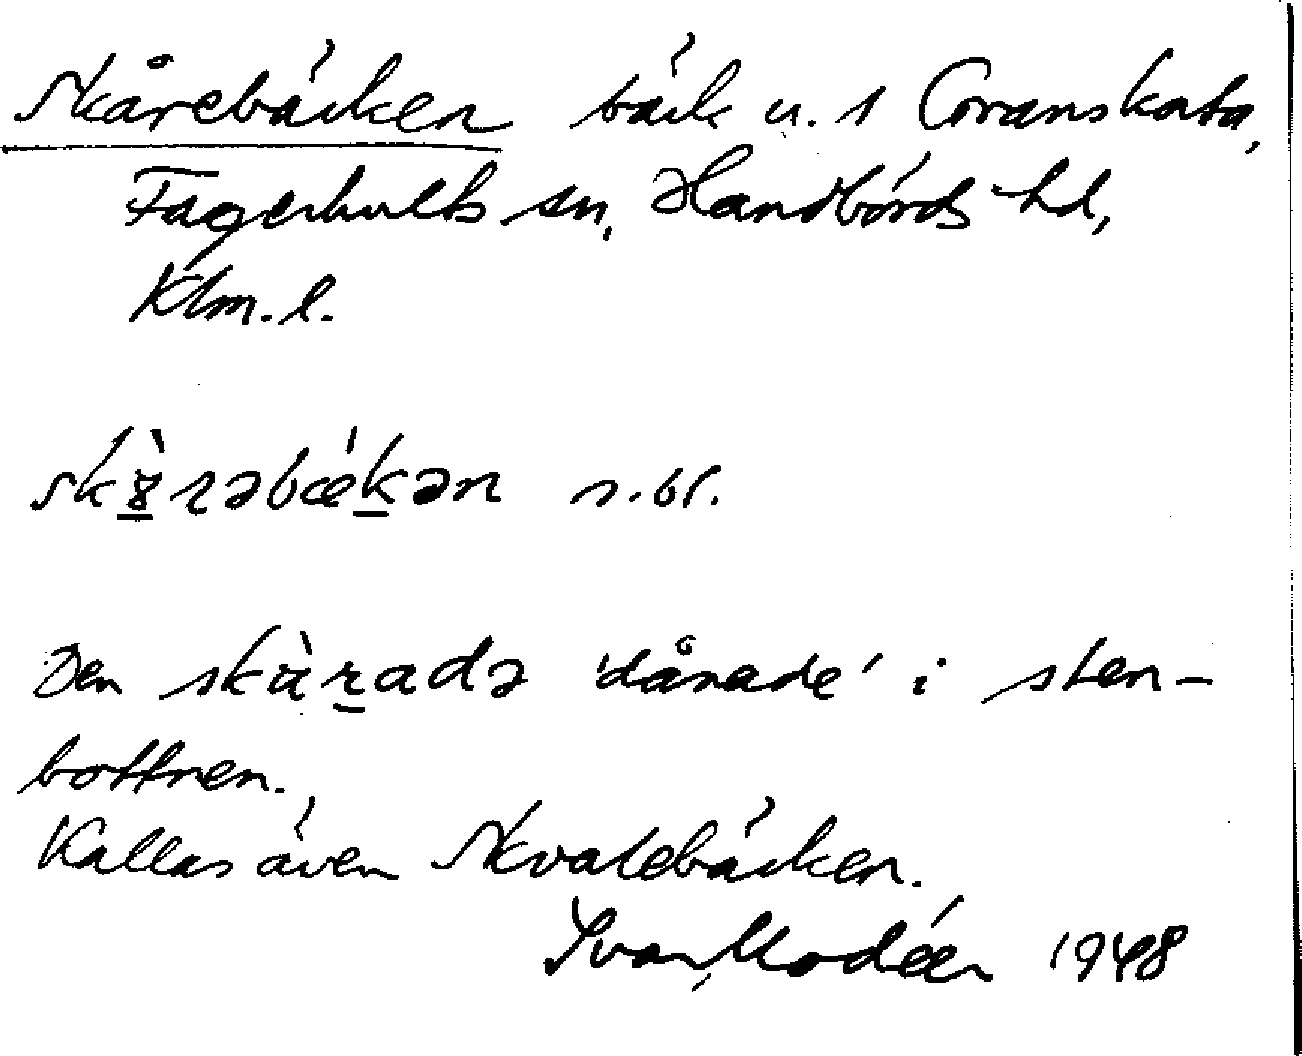 Skårebäcken bäck u. s Granskata,
Fagerhults sn, Handbörds hd,
Klm. l.
skɤ̀rəbækən s. bf.
Den skàradə 'dånade' i sten-
bottnen.
Kallas även Skvalebäcken.
Ivar Modéer 1948